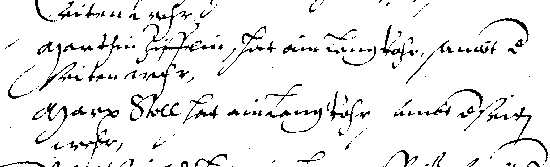 Seiten wehr
Marthin Zifflin, hat ain Lang Rohr, sambt d
Seiten wehr,
Marx Stoll hat ain Lang Rohr sambt d Seiten
wehr,